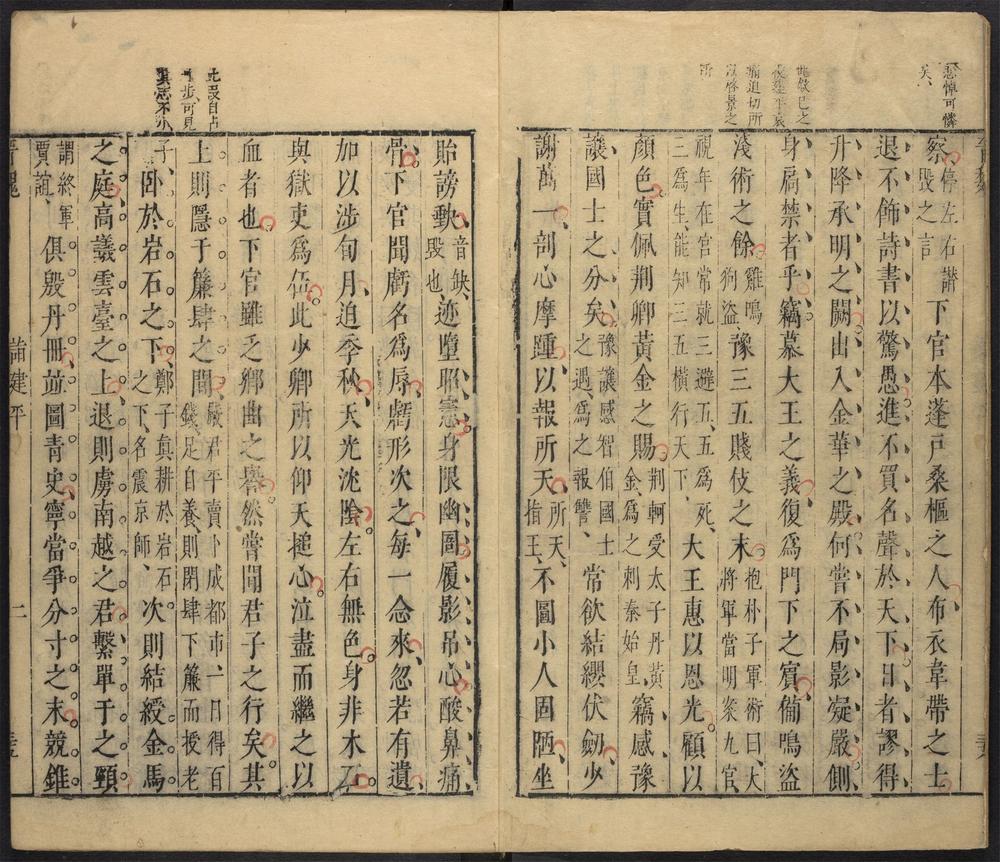 悲悼可憐
矣、
察、停左右譛毀之言下官本蓬戸桑樞之人布衣韋帶之士
退不飾詩書以驚愚進不買名聲於天下日者謬得
升降承明之闕出入金華之殿何嘗不局影凝嚴側
身扃禁者乎竊慕大王之義復爲門下之賓備鳴盜
淺術之餘雞鳴狗盜、豫三五賤伎之末、抱朴子軍術曰、大將軍當明案九宮
視年在宮常就三避五、五爲死、三爲生、能知三五橫行天下、大王惠以恩光顧以
顏色實佩荆卿黃金之賜荆軻受太子丹黃金、爲之刺秦始皇、竊感豫
讓國士之分矣、豫讓感智伯國士之遇、爲之報讐、常欲結纓伏劒少
謝萬一剖心摩踵以報所天所天、指王、不圖小人固陋坐
此段自占
步、可見
其志不小、
貽謗缺、音缺、毀也、迹墜昭憲身限幽圄履影吊心酸鼻痛
骨下官聞虧名爲辱虧形次之每一念來忽若有遺
加以涉旬月迫季秋天光沈陰左右無色身非木石
與獄吏爲伍此少卿所以仰天搥心泣盡而繼之以
血者也下官雖乏鄉曲之譽然嘗聞君子之行矣其
上則隱于簾肆之間嚴君平賣卜成都市、一日得百錢、足自養、則閉肆下簾而授老
子、臥於岩石之下、鄭子眞耕於岩石之下、名震京師、次則結綬金馬
之庭高議雲臺之上退則虜南越之君繫單于之頸
謂終軍賈誼、俱啟丹冊並圖青史寧當爭分寸之末競錐
諭建平
二